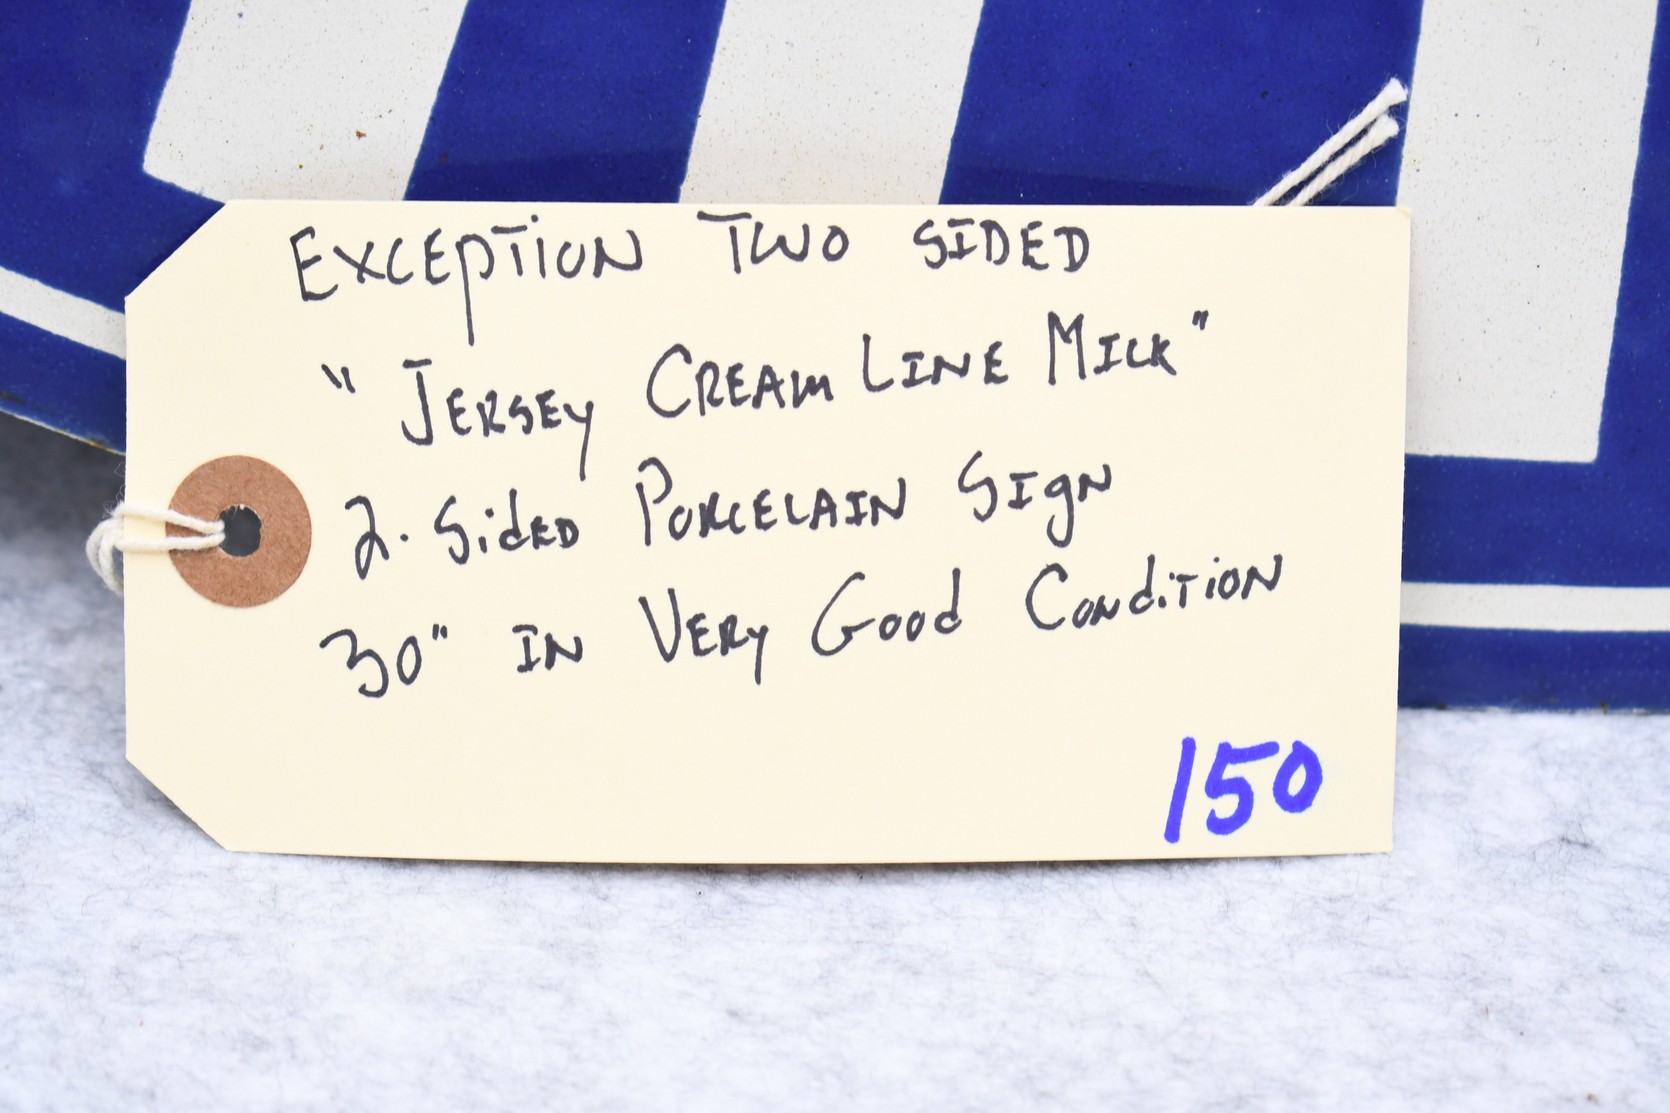 EXCEPTION TWO SIDED
"JERSEY CREAM LINE MILK"
2. Sided PORCELAIN SIGN
30" IN VERY GOOD CONDITION
150